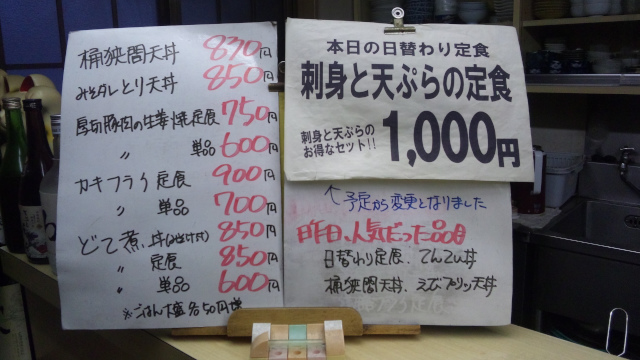 桶狭間天丼 870円
みそタレとり天丼 850円
厚切豚肉の生姜焼定食 750円
〃 単品 600円
カキフライ定食 900円
〃 単品 700円
どて煮、丼(みそ汁付) 850円
〃 定食 850円
〃 単品 600円
※ごはん大盛各50円増
本日の日替わり定食
刺身と天ぷらの定食
刺身と天ぷらの
お得なセット!!
1,000円
↑予定から変更となりました
昨日、人気だった品目
日替わり定食、てんてん丼
桶狭間天丼、えびプリッ天丼